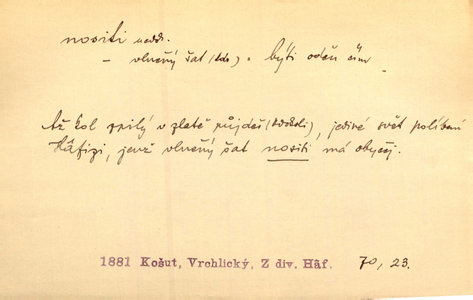 nositi nedok.
– vlněný šat (kdo) = býti oděn čím –
Až kol spilý v zlatě půjdeš (kdokoli), jediné svět políbení
Háfizi, jenž vlněný šat nositi má obyčej.
1881 Košut, Vrchlický, Z div. Háf. 70, 23.